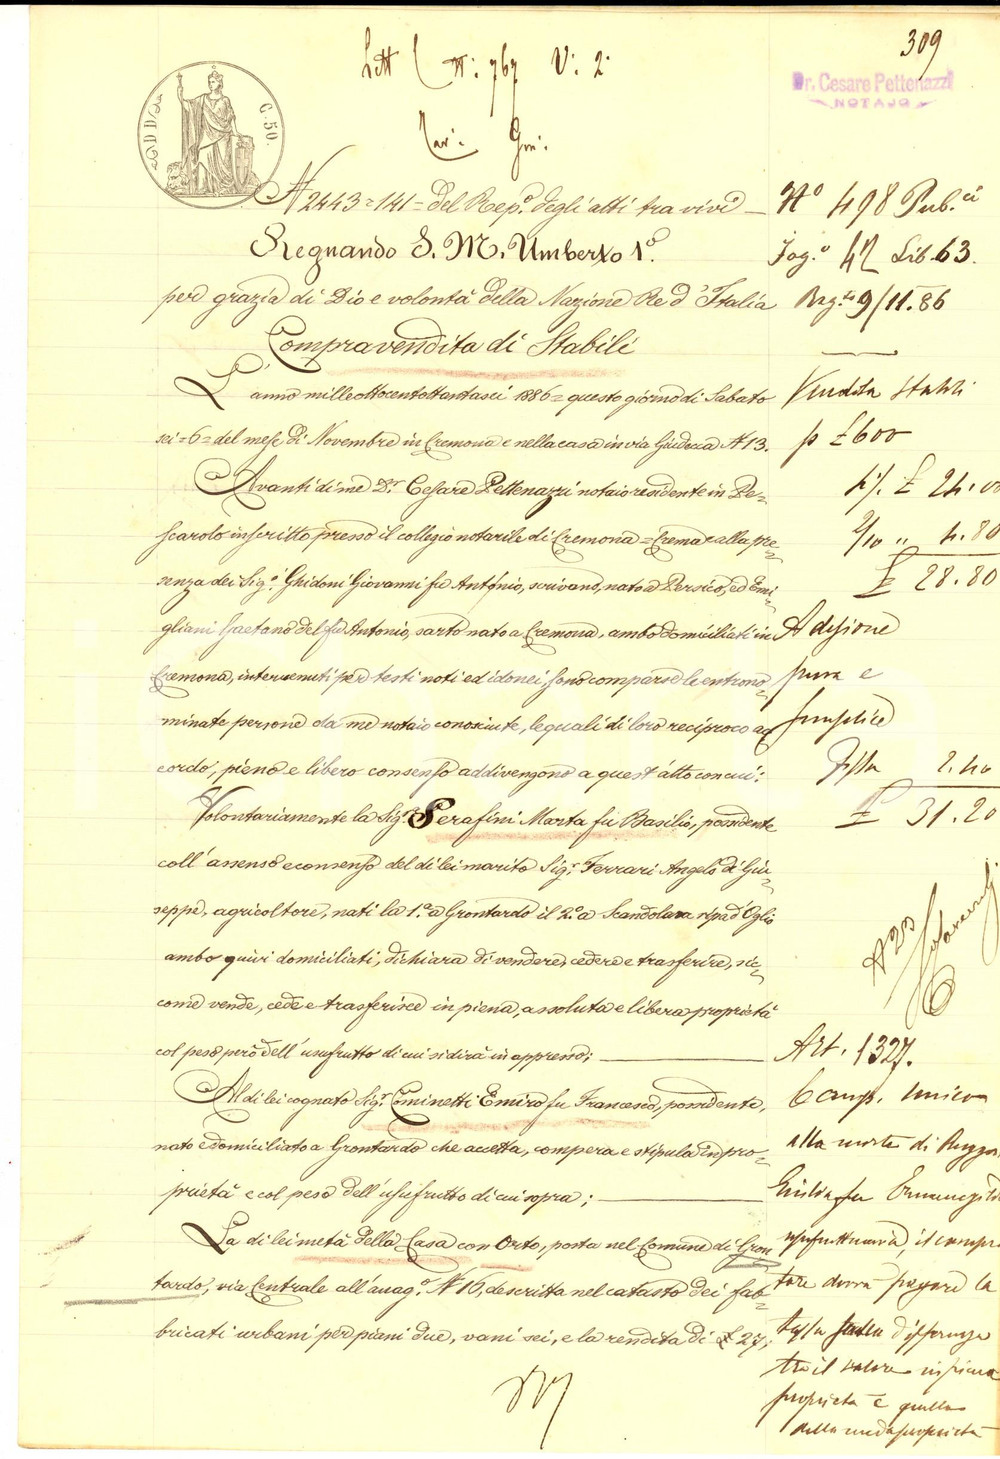 309
Lett C N: 767 V: 2
Dr. Cesare Pettenazzi
NOTAJO
C. 50.
N 2443=141= del Rep.o degli atti tra vivi
Regnando S. M. Umberto 1.o
per grazia di Dio e volontà della Nazione Re d'Italia
Compravendita di Stabili
L'anno milleottocentottantasei 1886= questo giorno di Sabato
sei=6= del mese di Novembre in Cremona e nella casa in via Giudecca N 13.
Avanti di me D.r Cesare Pettenazzi notaio residente in Pe=
scarolo inscritto presso il collegio notarile di Cremona=Crema e alla pre=
senza dei Sig.i Ghidoni Giovanni fu Antonio, scrivano, nato a Persico, ed Emi=
gliani Gaetano del fu Antonio, sarto nato a Cremona, ambo domiciliati in
Cremona, intervenuti per testi noti ed idonei, sono comparse le entrono=
minate persone da me notaio conosciute, le quali di loro reciproco ac
cordo, pieno e libero consenso addivengono a quest'atto con cui:
Volontariamente la Sig.a Serafini Marta fu Basilio, possidente
coll'assenso e consenso del di lei marito Sig.r Ferrari Angelo di Giu=
seppe, agricoltore, nati la 1.a a Grontardo il 2.o a Scandolara ripa d'Oglio
ambo quivi domiciliati, dichiara di vendere, cedere e trasferire, sic=
come vende, cede e trasferisce in piena, assoluta e libera proprietà
col peso però dell'usufrutto di cui si dirà in appresso;
Al di lei cognato Sig.r Cominetti Emiro fu Francesco, possidente,
nato e domiciliato a Grontardo che accetta, compera e stipula in pro=
prietà e col peso dell'usufrutto di cui sopra;
La di lei metà della Casa con Orto, posta nel Comune di Gron
tardo, via Centrale all'anag.o N 16, descritta nel catasto dei fab=
bricati urbani per piani due, vani sei, e la rendita di £ 27;
N.o 498 Pub.ci
Fog.o 42 Lib. 63.
9/11.86
Vendita stabili
p £ 600
£ 24.00
2/10 " 4.80
£ 28.80
Adesione
pura e
semplice
fissa 2.40
£ 31.20
Art. 1327.
Comp. unico
alla morte di
Giulia fu
usufruttuaria, il compra
tore dovrà pagare la
tassa differenza
tra il valore in piena
proprietà e quello
della nuda proprietà